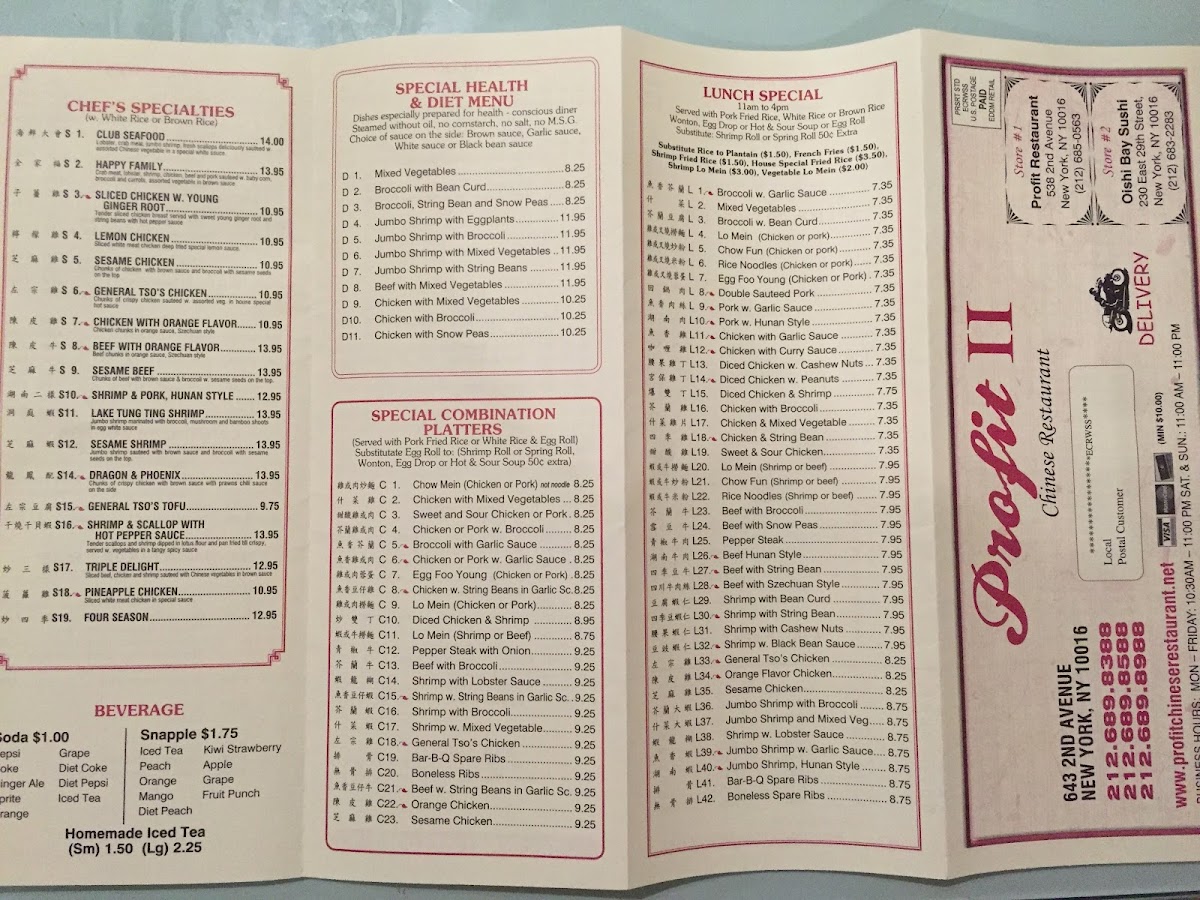 CHEF'S SPECIALTIES
(w. White Rice or Brown Rice)
海鮮大會 S 1. CLUB SEAFOOD 14.00
Lobster, crab meat, jumbo shrimp, fresh scallops deliciously sauteed w.
assorted Chinese vegetable in a special white sauce
全家福 S 2. HAPPY FAMILY 13.95
Crab meat, lobster, shrimp, chicken, beef and pork sauteed w. baby corn,
broccoli and carrots, assorted vegetable in brown sauce
子薑雞 S 3. SLICED CHICKEN W. YOUNG
GINGER ROOT 10.95
Tender sliced chicken breast served with sweet young ginger root and
string beans with hot pepper sauce
檸檬雞 S 4. LEMON CHICKEN 10.95
Sliced white meat chicken deep fried special lemon sauce
芝麻雞 S 5. SESAME CHICKEN 10.95
Chunks of chicken with brown sauce and broccoli with sesame seeds
on the top
左宗雞 S 6. GENERAL TSO'S CHICKEN 10.95
Chunks of crispy chicken sauteed w. assorted veg. in house special
hot sauce
陳皮雞 S 7. CHICKEN WITH ORANGE FLAVOR 10.95
Chicken chunks in orange sauce, Szechuan style
陳皮牛 S 8. BEEF WITH ORANGE FLAVOR 13.95
Beef chunks in orange sauce, Szechuan style
芝麻牛 S 9. SESAME BEEF 13.95
Chunks of beef with brown sauce & broccoli w. sesame seeds on the top.
湖南二樣 S10. SHRIMP & PORK, HUNAN STYLE 12.95
洞庭蝦 S11. LAKE TUNG TING SHRIMP 13.95
Jumbo shrimp marinated with broccoli, mushroom and bamboo shoots
in egg white sauce
芝麻蝦 S12. SESAME SHRIMP 13.95
Jumbo shrimp sauteed with brown sauce and broccoli with sesame
seeds on the top.
龍鳳配 S14. DRAGON & PHOENIX 13.95
Chunks of crispy chicken with brown sauce with prawns chili sauce
on the side
左宗豆腐 S15. GENERAL TSO'S TOFU 9.75
干燒干貝蝦 S16. SHRIMP & SCALLOP WITH
HOT PEPPER SAUCE 13.95
Tender scallops and shrimp dipped in lotus flour and pan fried till crispy,
served w. vegetables in a tangy spicy sauce
炒三樣 S17. TRIPLE DELIGHT 12.95
Sliced beef, chicken and shrimp sauteed with Chinese vegetables in brown sauce
菠蘿雞 S18. PINEAPPLE CHICKEN 10.95
Sliced white meat chicken in special sauce
炒四季 S19. FOUR SEASON 12.95
BEVERAGE
oda $1.00
epsi Grape
oke Diet Coke
inger Ale Diet Pepsi
prite Iced Tea
range
Snapple $1.75
Iced Tea Kiwi Strawberry
Peach Apple
Orange Grape
Mango Fruit Punch
Diet Peach
Homemade Iced Tea
(Sm) 1.50 (Lg) 2.25
SPECIAL HEALTH
& DIET MENU
Dishes especially prepared for health - conscious diner
Steamed without oil, no cornstarch, no salt, no M.S.G.
Choice of sauce on the side: Brown sauce, Garlic sauce,
White sauce or Black bean sauce
D 1. Mixed Vegetables 8.25
D 2. Broccoli with Bean Curd 8.25
D 3. Broccoli, String Bean and Snow Peas 8.25
D 4. Jumbo Shrimp with Eggplants 11.95
D 5. Jumbo Shrimp with Broccoli 11.95
D 6. Jumbo Shrimp with Mixed Vegetables 11.95
D 7. Jumbo Shrimp with String Beans 11.95
D 8. Beef with Mixed Vegetables 11.95
D 9. Chicken with Mixed Vegetables 10.25
D10. Chicken with Broccoli 10.25
D11. Chicken with Snow Peas 10.25
SPECIAL COMBINATION
PLATTERS
(Served with Pork Fried Rice or White Rice & Egg Roll)
Substitutate Egg Roll to: (Shrimp Roll or Spring Roll,
Wonton, Egg Drop or Hot & Sour Soup 50¢ extra)
雞或肉炒麵 C 1. Chow Mein (Chicken or Pork) not noodle 8.25
什菜雞 C 2. Chicken with Mixed Vegetables 8.25
甜酸雞或肉 C 3. Sweet and Sour Chicken or Pork 8.25
芥蘭雞或肉 C 4. Chicken or Pork w. Broccoli 8.25
魚香芥蘭 C 5. Broccoli with Garlic Sauce 8.25
魚香雞或肉 C 6. Chicken or Pork w. Garlic Sauce 8.25
雞或肉蓉蛋 C 7. Egg Foo Young (Chicken or Pork) 8.25
魚香豆仔雞 C 8. Chicken w. String Beans in Garlic Sc. 8.25
雞或肉撈麵 C 9. Lo Mein (Chicken or Pork) 8.25
炒雙丁 C10. Diced Chicken & Shrimp 8.95
蝦或牛撈麵 C11. Lo Mein (Shrimp or Beef) 8.75
青椒牛 C12. Pepper Steak with Onion 9.25
芥蘭牛 C13. Beef with Broccoli 9.25
蝦龍糊 C14. Shrimp with Lobster Sauce 9.25
魚香豆仔蝦 C15. Shrimp w. String Beans in Garlic Sc. 9.25
芥蘭蝦 C16. Shrimp with Broccoli 9.25
什菜蝦 C17. Shrimp w. Mixed Vegetable 9.25
左宗雞 C18. General Tso's Chicken 9.25
排骨 C19. Bar-B-Q Spare Ribs 9.25
無骨排 C20. Boneless Ribs 9.25
魚香豆仔牛 C21. Beef w. String Beans in Garlic Sc. 9.25
陳皮雞 C22. Orange Chicken 9.25
芝麻雞 C23. Sesame Chicken 9.25
LUNCH SPECIAL
11am to 4pm
Served with Pork Fried Rice, White Rice or Brown Rice
Wonton, Egg Drop or Hot & Sour Soup or Egg Roll
Substitute: Shrimp Roll or Spring Roll 50¢ Extra
Substitute Rice to Plantain ($1.50), French Fries ($1.50),
Shrimp Fried Rice ($1.50), House Special Fried Rice ($3.50),
Shrimp Lo Mein ($3.00), Vegetable Lo Mein ($2.00)
魚香芥蘭 L 1. Broccoli w. Garlic Sauce 7.35
什菜 L 2. Mixed Vegetables 7.35
芥蘭豆腐 L 3. Broccoli w. Bean Curd 7.35
雞或叉燒撈麵 L 4. Lo Mein (Chicken or pork) 7.35
雞或叉燒炒粉 L 5. Chow Fun (Chicken or pork) 7.35
雞或叉燒米粉 L 6. Rice Noodles (Chicken or pork) 7.35
雞或叉燒蓉蛋 L 7. Egg Foo Young (Chicken or Pork) 7.35
回鍋肉 L 8. Double Sauteed Pork 7.35
魚香肉絲 L 9. Pork w. Garlic Sauce 7.35
湖南肉 L10. Pork w. Hunan Style 7.35
魚香雞 L11. Chicken with Garlic Sauce 7.35
咖喱雞 L12. Chicken with Curry Sauce 7.35
腰果雞丁 L13. Diced Chicken w. Cashew Nuts 7.35
宮保雞丁 L14. Diced Chicken w. Peanuts 7.35
爆雙丁 L15. Diced Chicken & Shrimp 7.75
芥蘭雞 L16. Chicken with Broccoli 7.35
什菜雞片 L17. Chicken & Mixed Vegetable 7.35
四季雞 L18. Chicken & String Bean 7.35
甜酸雞 L19. Sweet & Sour Chicken 7.35
蝦或牛撈麵 L20. Lo Mein (Shrimp or beef) 7.95
蝦或牛炒粉 L21. Chow Fun (Shrimp or beef) 7.95
蝦或牛米粉 L22. Rice Noodles (Shrimp or beef) 7.95
芥蘭牛 L23. Beef with Broccoli 7.95
雪豆牛 L24. Beef with Snow Peas 7.95
青椒牛肉 L25. Pepper Steak 7.95
湖南牛肉 L26. Beef Hunan Style 7.95
四季豆牛 L27. Beef with String Bean 7.95
四川牛肉絲 L28. Beef with Szechuan Style 7.95
豆腐蝦仁 L29. Shrimp with Bean Curd 7.95
四季豆蝦仁 L30. Shrimp with String Bean 7.95
腰果蝦仁 L31. Shrimp with Cashew Nuts 7.95
豆豉蝦仁 L32. Shrimp w. Black Bean Sauce 7.95
左宗雞 L33. General Tso's Chicken 8.25
陳皮雞 L34. Orange Flavor Chicken 8.25
芝麻雞 L35. Sesame Chicken 8.25
芥蘭大蝦 L36. Jumbo Shrimp with Broccoli 8.75
什菜大蝦 L37. Jumbo Shrimp and Mixed Veg. 8.75
蝦龍糊 L38. Shrimp w. Lobster Sauce 8.75
魚香蝦 L39. Jumbo Shrimp w. Garlic Sauce 8.75
湖南蝦 L40. Jumbo Shrimp, Hunan Style 8.75
排骨 L41. Bar-B-Q Spare Ribs 8.75
無骨排 L42. Boneless Spare Ribs 8.75
PRSRT STD
ECRWSS
U.S. POSTAGE
PAID
EDDM RETAIL
Store # 1
Profit Restaurant
538 2nd Avenue
New York, NY 10016
(212) 685-0563
Store # 2
Oishi Bay Sushi
230 East 29th Street,
New York, NY 10016
(212) 683-2283
Profit II
Chinese Restaurant
DELIVERY
****************ECRWSS****
Local
Postal Customer
643 2ND AVENUE
NEW YORK, NY 10016
212.689.8388
212.689.8588
212.689.8988
VISA
(MIN $10.00)
www.profitchineserestaurant.net
BUSINESS HOURS: MON – FRIDAY: 10:30AM – 11:00 PM SAT. & SUN.: 11:00 AM – 11:00 PM